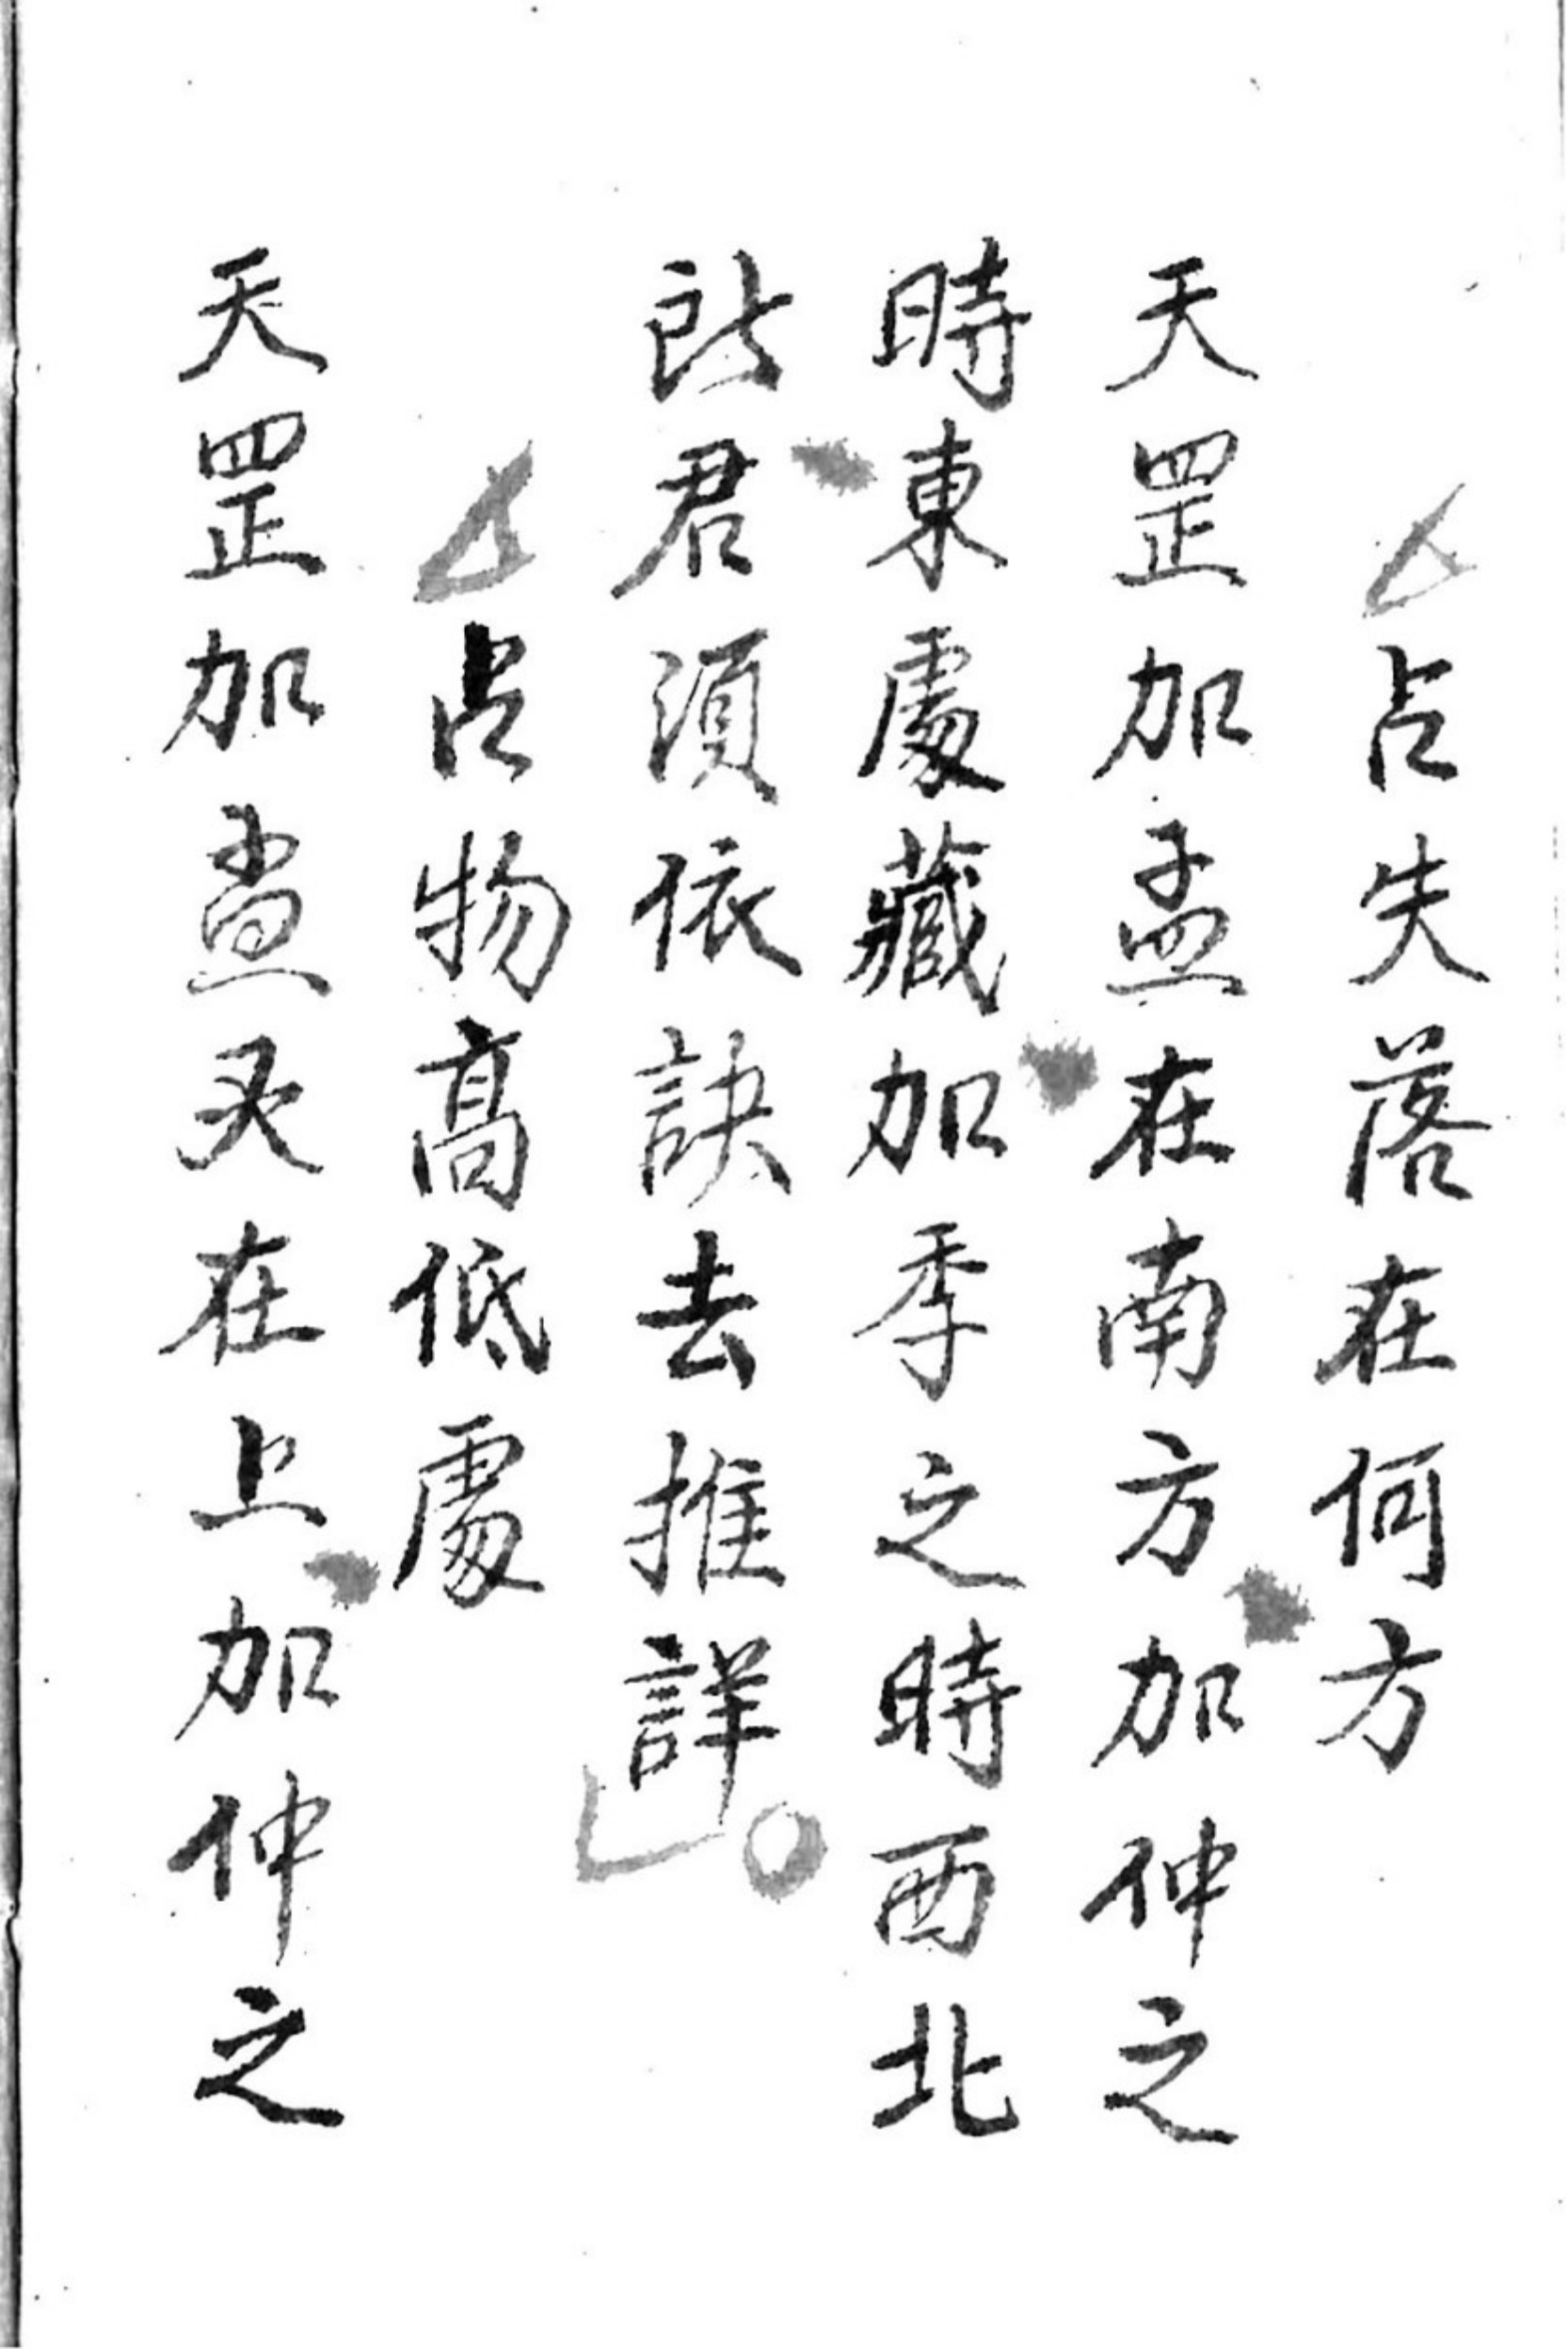 占失落在何方
天罡加孟在南方加仲之
時東處藏加季之時西北
君須依訣去推詳
占物高低處
天罡加在上加仲之